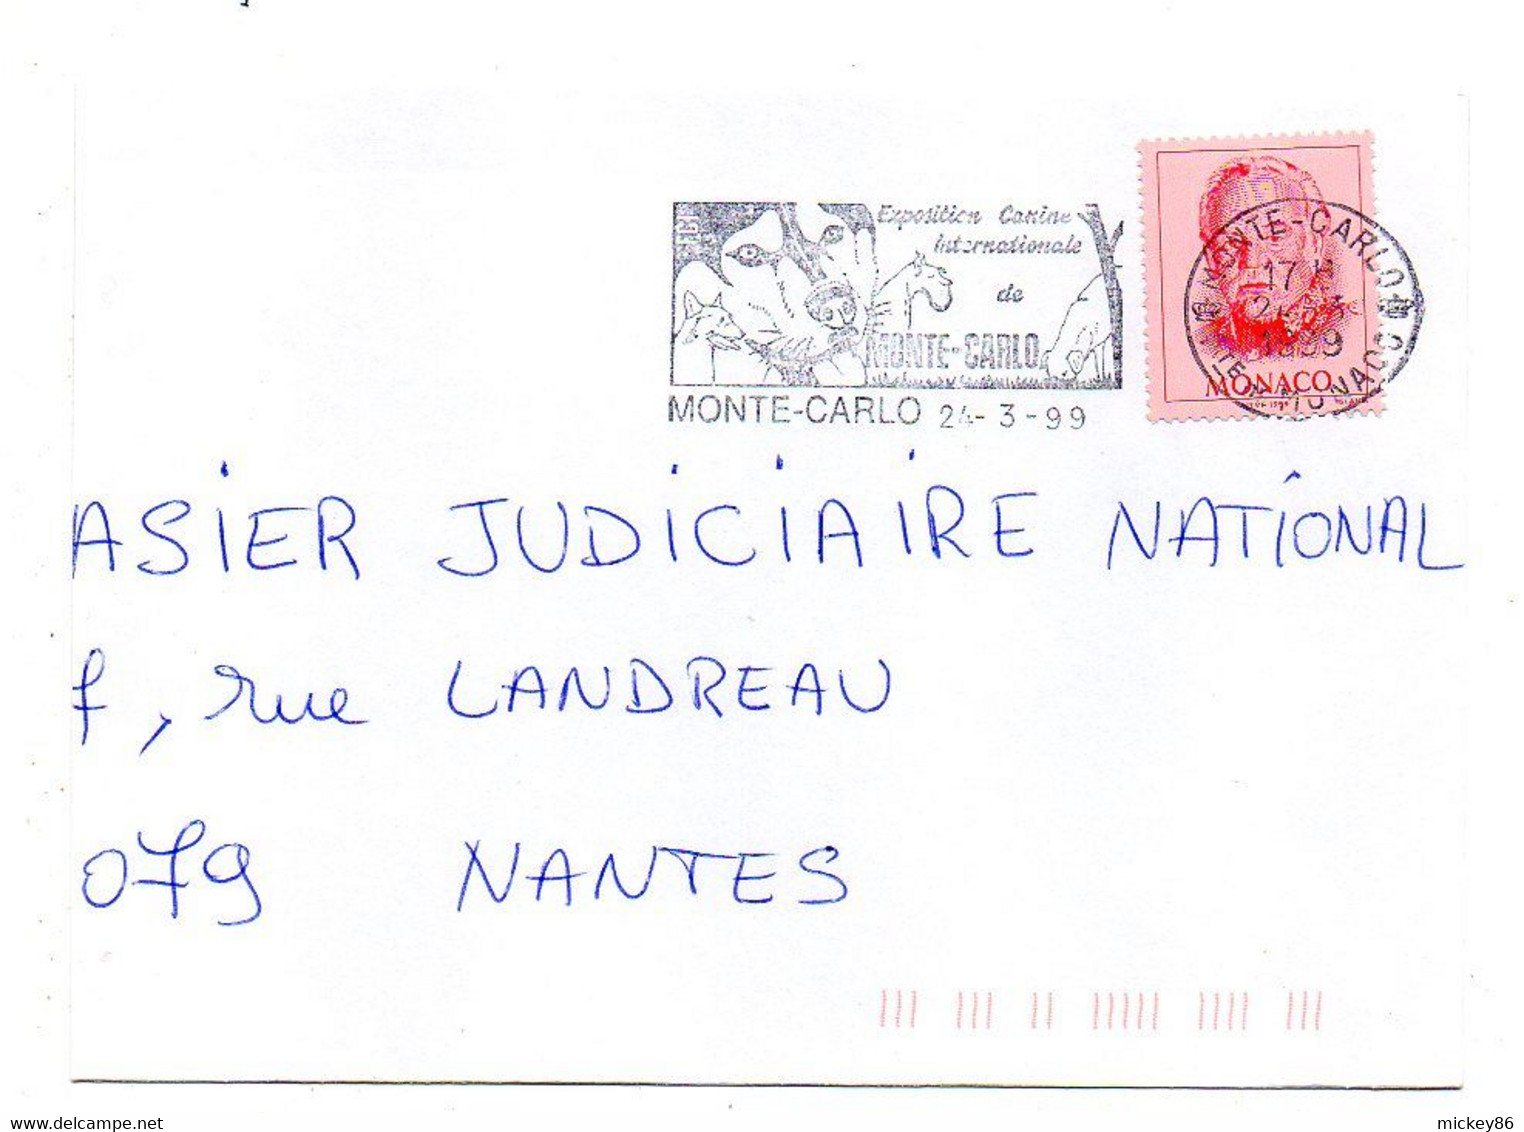 Exposition Canine
Internationale
de
MONTE-CARLO
MONTE-CARLO 24-3-99
MONTE-CARLO
17 H
24-3
1999
MONACO
MONACO
ASIER JUDICIAIRE NATIONAL
7, rue LANDREAU
079 NANTES
mickey86